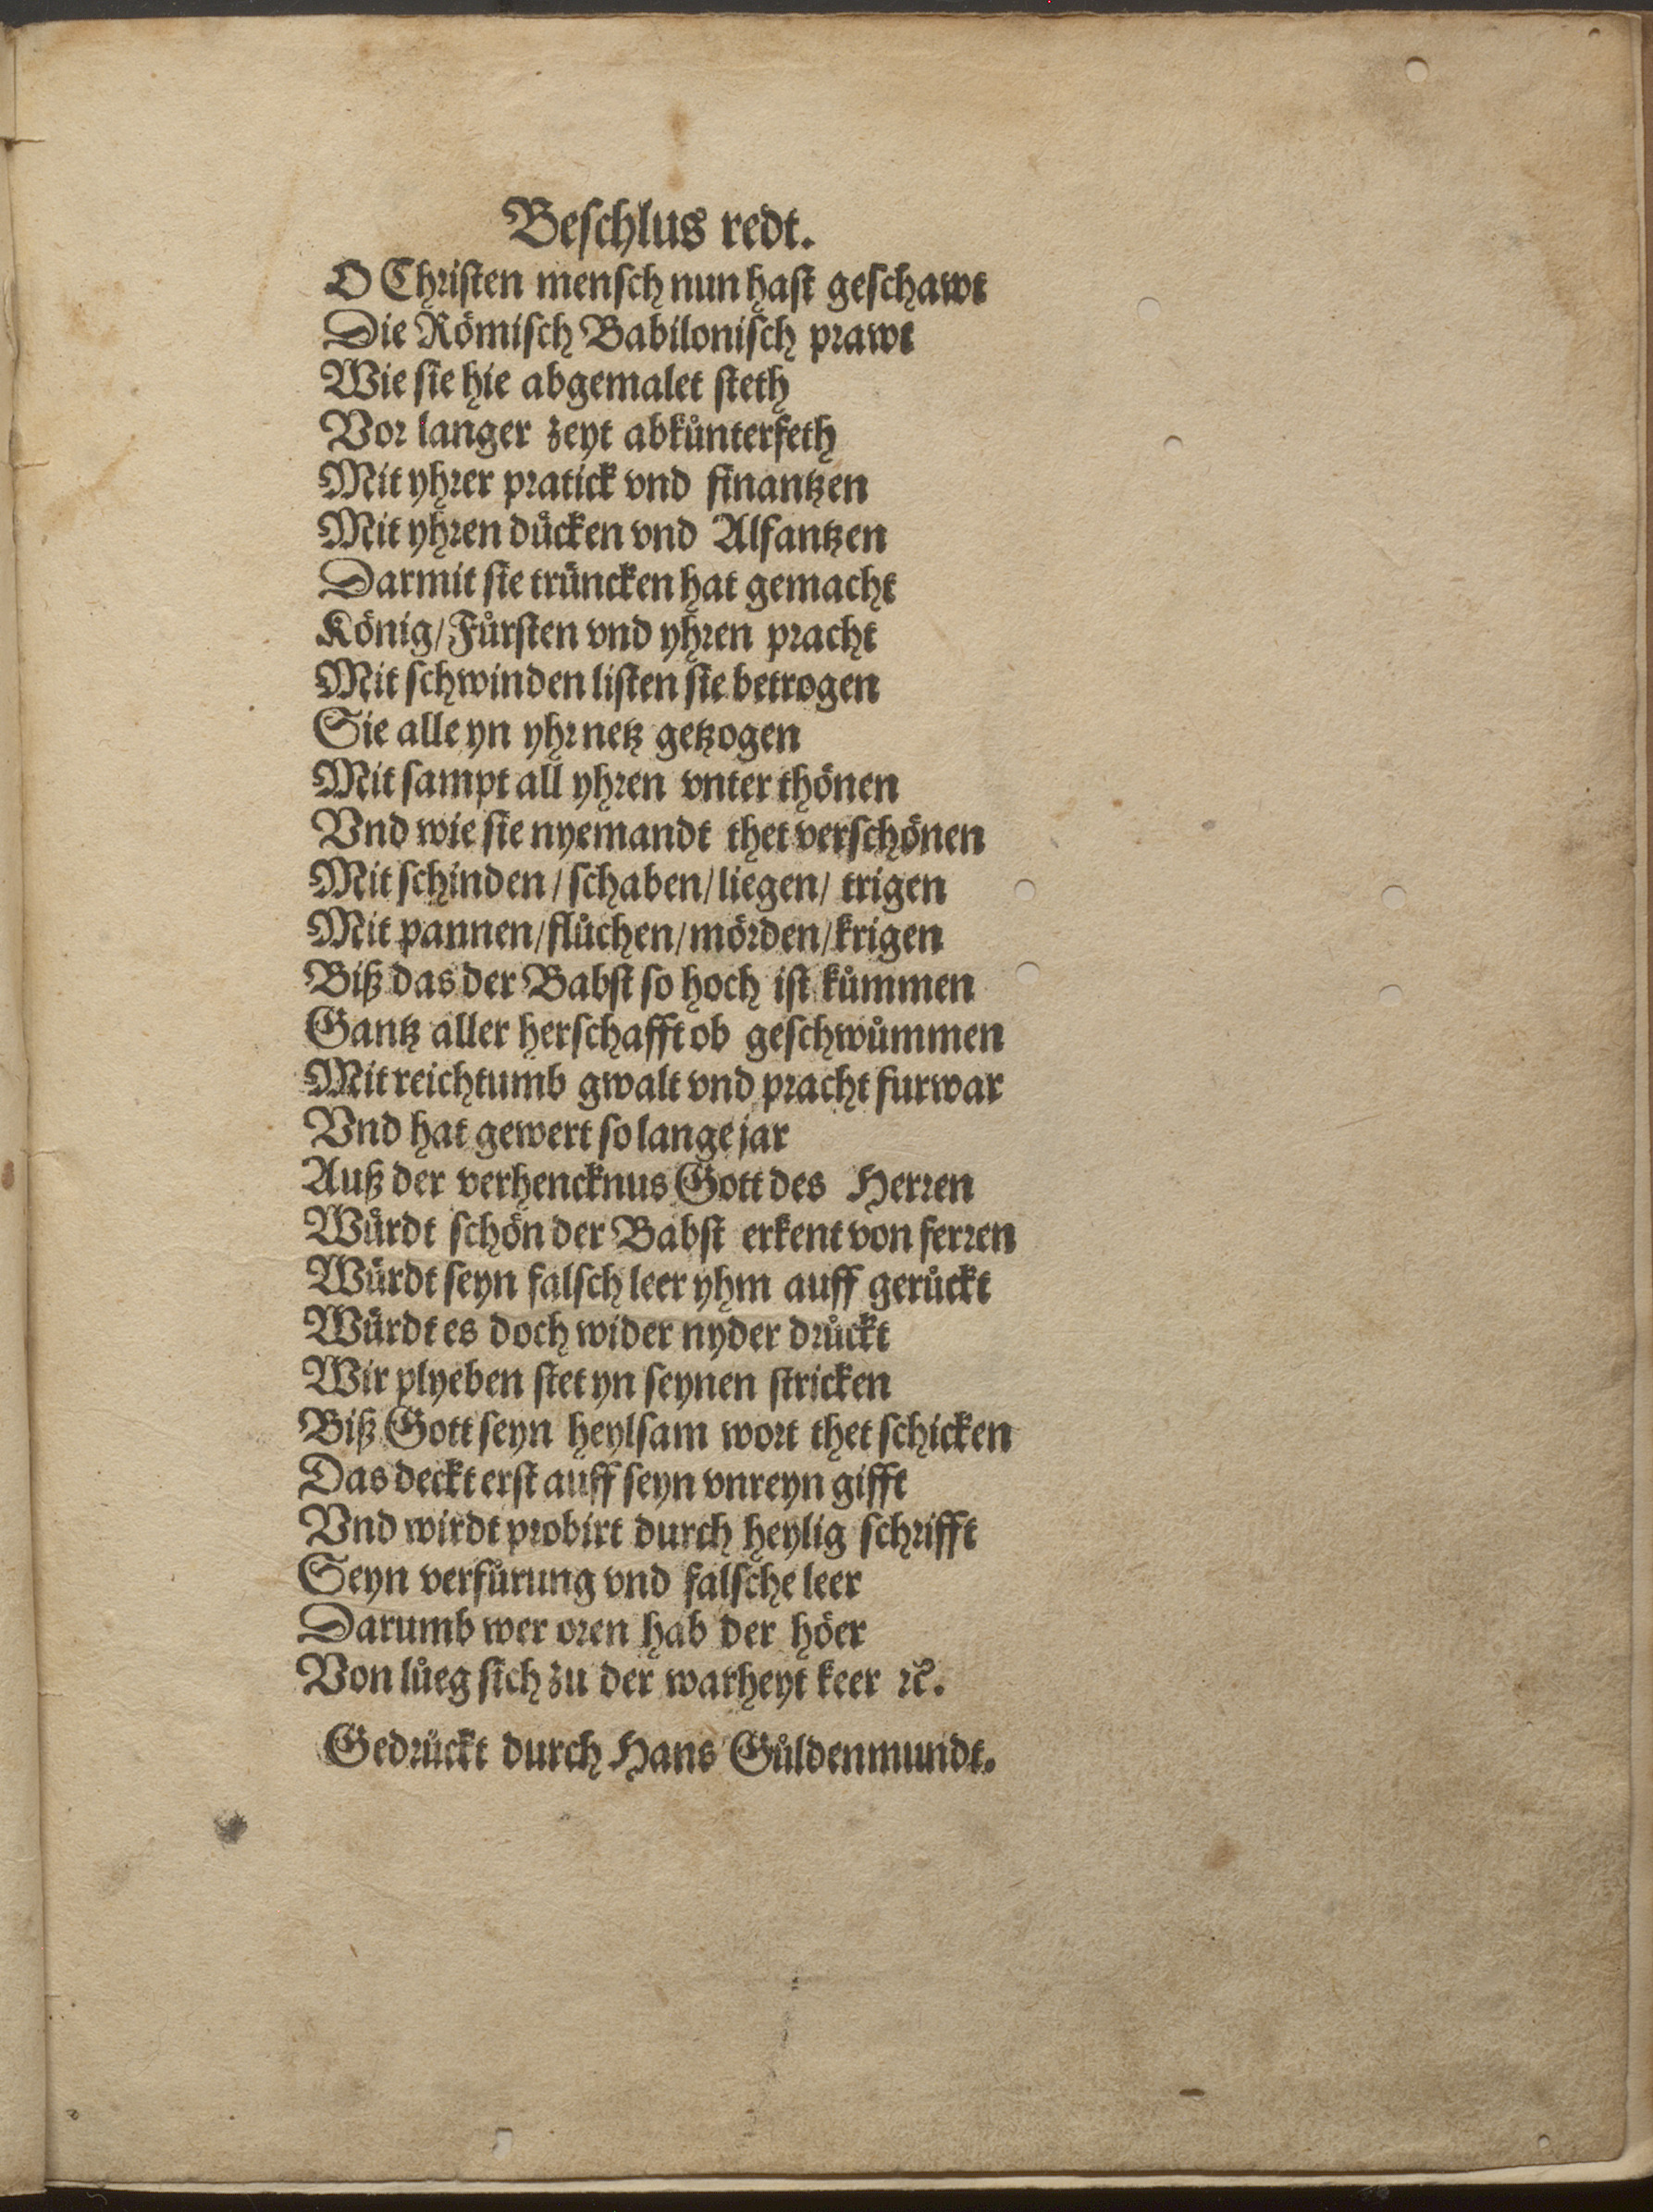 Beſchlus redt.
O Chriſten menſch nun haſt geſchawt
Die Römiſch Babiloniſch prawt
Wie ſie hie abgemalet ſteth
Vor langer zeyt abkůnterfeth
Mit yhrer pratick vnd finantzen
Mit yhren důcken vnd Alfantzen
Darmit ſie trüncken hat gemacht
König/ Fůrſten vnd yhren pracht
Mit ſchwinden liſten ſie betrogen
Sie alle yn yhr netz getzogen
Mit ſampt all yhren vnter thönen
Vnd wie ſie nyemandt thet verſchönen
Mit ſchinden/ ſchaben/ liegen/ trigen
Mit pannen/ flůchen/ mörden/ krigen
Biß das der Babſt ſo hoch iſt kůmmen
Gantz aller herſchafft ob geſchwůmmen
Mit reichtumb gwalt vnd pracht furwar
Vnd hat gewert ſo lange jar
Auß der verhencknus Gott des Herren
Wůrdt ſchön der Babſt erkent von ferren
Würdt ſeyn falſch leer yhm auff gerůckt
Würdt es doch wider nyder drůckt
Wir plyeben ſtet yn ſeynen ſtricken
Biß Gott ſeyn heylſam wort thet ſchicken
Das deckt erſt auff ſeyn vnreyn gifft
Vnd wirdt probirt durch heylig ſchrifft
Seyn verfůrung vnd falſche leer
Darumb wer oren hab der höer
Von lůeg ſich zu der warheyt keer ꝛc̃.
Gedrůckt durch Hans Gůldenmundt.